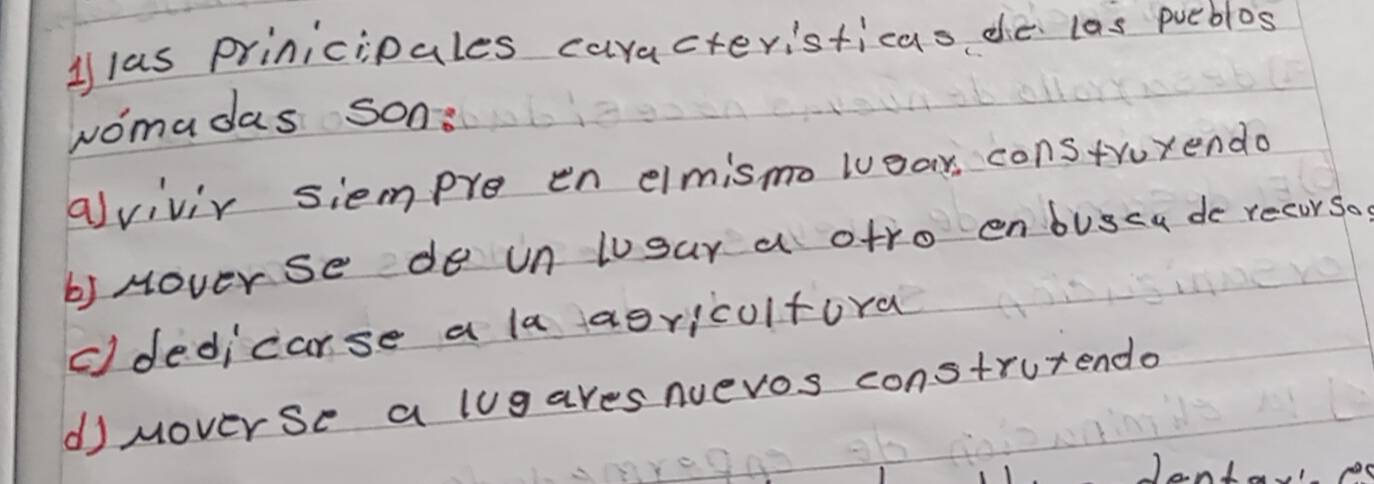 1) las prinicipales caracteristicas de los pueblos
Nómadas son:
a) vivir siempre en el mismo lugar. construyendo
b) Moverse de un lugar a otro en busca de recursos
c) dedicarse a la agricultura
d) Moverse a lugares nuevos construyendo